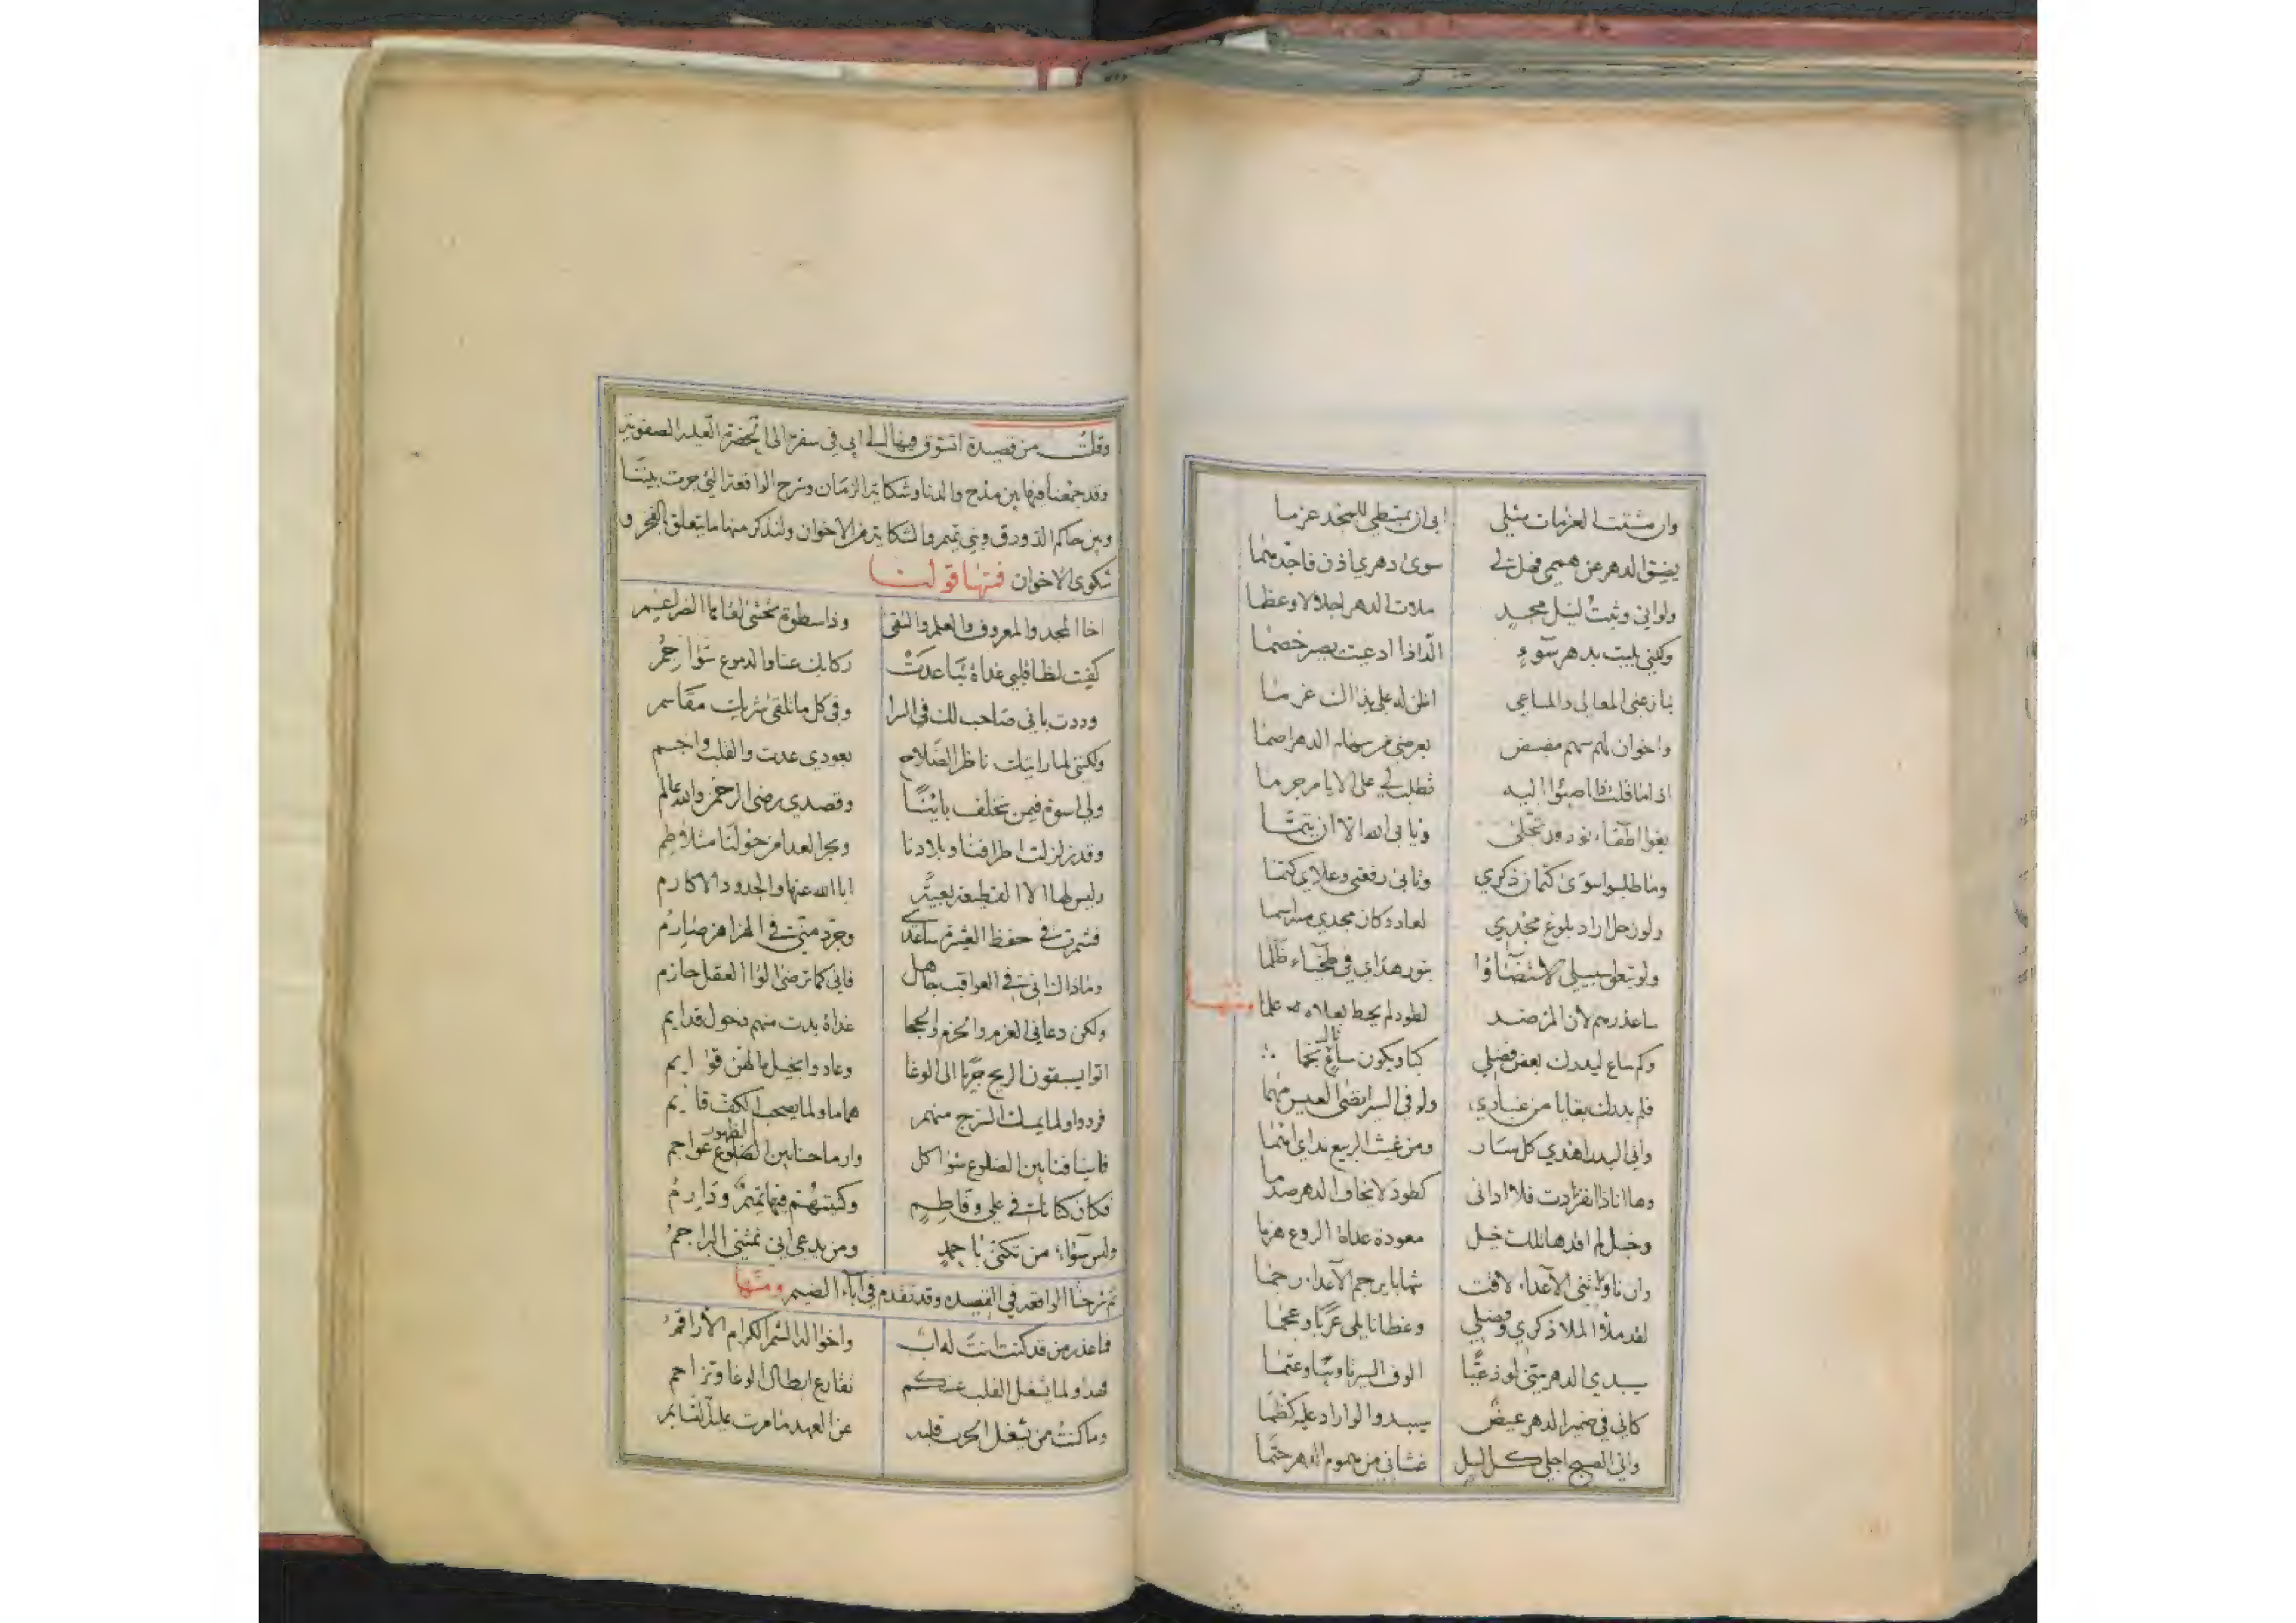 وان شئت العزمات مثلي ابى ان يمتطي للمجد عزما
يضيق الدهر عن هممي فهل لي سوى دهري اذن فاجد منما
ولو اني وثبت لنيل مجد ملات الدهر اجلالا وعظما
ولكني بليت بدهر سوء الذاذا ادعيت يصر خصما
ينازعني المعالي والمساعي اظن له على بذاك غرما
واخوان لهم سهم مصيص يعرضني من سهام الدهر اصما
اذا ما قلت اصبوا اليه فطلب لي على الايام جرما
بغوا اطفاء نور تجلى ويابى الله الا ان يتما
وما طلبوا سوى كتمان ذكري وتابى رفعتي وعلاي كتما
ولو زحل اراد بلوغ مجدي لعاد وكان مجدي منه اسما
ولو تبعوا سبيلي لاستضاؤا بنور هداي في طخياء ظلما
ساعذرهم لان المرء ضد لطود لم يحط بعلاه علما ومنها
وكم ساع ليدرك بعض فضلي كبا ويكون ساع نجما
فلم يدرك بقايا من غباري ولو في السير انضى العيس منها
واني البدر اهدي كل سار ومن غيث الربيع نداي اهمى
وها انا ذا انفردت فلا ادانى كطود لا يخاف الدهر صدما
وخيل لم اقدها تلك خيل معودة غداة الروع هزما
وان ناوتني الاعداء لاقت شهابا يرجم الاعداء رجما
لقد ملؤا الملا ذكري وفضلي وعظا نايلى عربا وعجما
سيدي الدهر يتني لوذعيا الوف السير ناوبا وعتما
كاني في ضمير الدهر غيض سيبدوا لو اراد عليه كظما
واني الصبح اجلى كل ليل غشاني من هموم الدهر حتما
وقلت من قصيدة اتشوق فيها الى ابي في سفرة الى الحضرة العلية الصفوية
وقد جمعنا فيها بين مدح والدنا وشكاية الزمان وشرح الواقعة التي جرت بيننا
وبين حاكم الدورق وبني تميم والشكاية من الاخوان ولنذكر منها ما يتعلق بالفخر و
شكوى الاخوان فمنها قولنا
اخا المجد والمعروف والعلم والتقى وذا سطوة تخشى لقاها الضراغيم
كفيت لظا قلبي غداة تباعدت ركابك عنا والدموع سواجم
وددت باني صاحب لك في السرا وفي كل ما تلقى شريك مقاسم
ولكنني لما رايتك ناظر الصلاح بعودي عدت والقلب واجم
ولي اسوة فيمن تخلف بابنا وقصدي رضى الرحمن والله عالم
وقد زلزلت اطرافنا وبلادنا وبحر العدا من حولنا متلاطم
وليس لها الا القطيعة بعيتي ابا الله عنها والجدود الاكارم
فشمرت في حفظ العشيرة ساعدي وجرد مني في الهزاهز صارم
وما ذاك اني في العواقب جاهل فاني كما ترضى لوا العقل حازم
ولكن دعاني العزم والحزم والحجا غداة بدت منهم ذحول قدايم
اتوا يسبقون الريح جريا الى الوغا وعادوا بخيل ما لهن قوايم
فردوا ولما يمسك السرج منهم هاما ولما يصحب الكف قايم
فاسيافنا بين الضلوع شواكل وارماحنا بين الظهور عواجم
فكان كنا تاك في علي وفاطم وكيتهم فيها تميم ودارم
وليس سواء من تكنى باحمد ومن يدعي ابن نمتني البراجم
ثم شرحنا الواقعة في القصيده وقد تقدم في آباء الضيم ومنها
فاعذر من قد كنت انت له اب واخوا له الشم الكرام الاراقم
فهذا ولما يشغل القلب عنكم نقارع ابطال الوغا وتزاحم
وما كنت من يشغل الحرب قلبه عن العهد ما مرت عليك لقايم